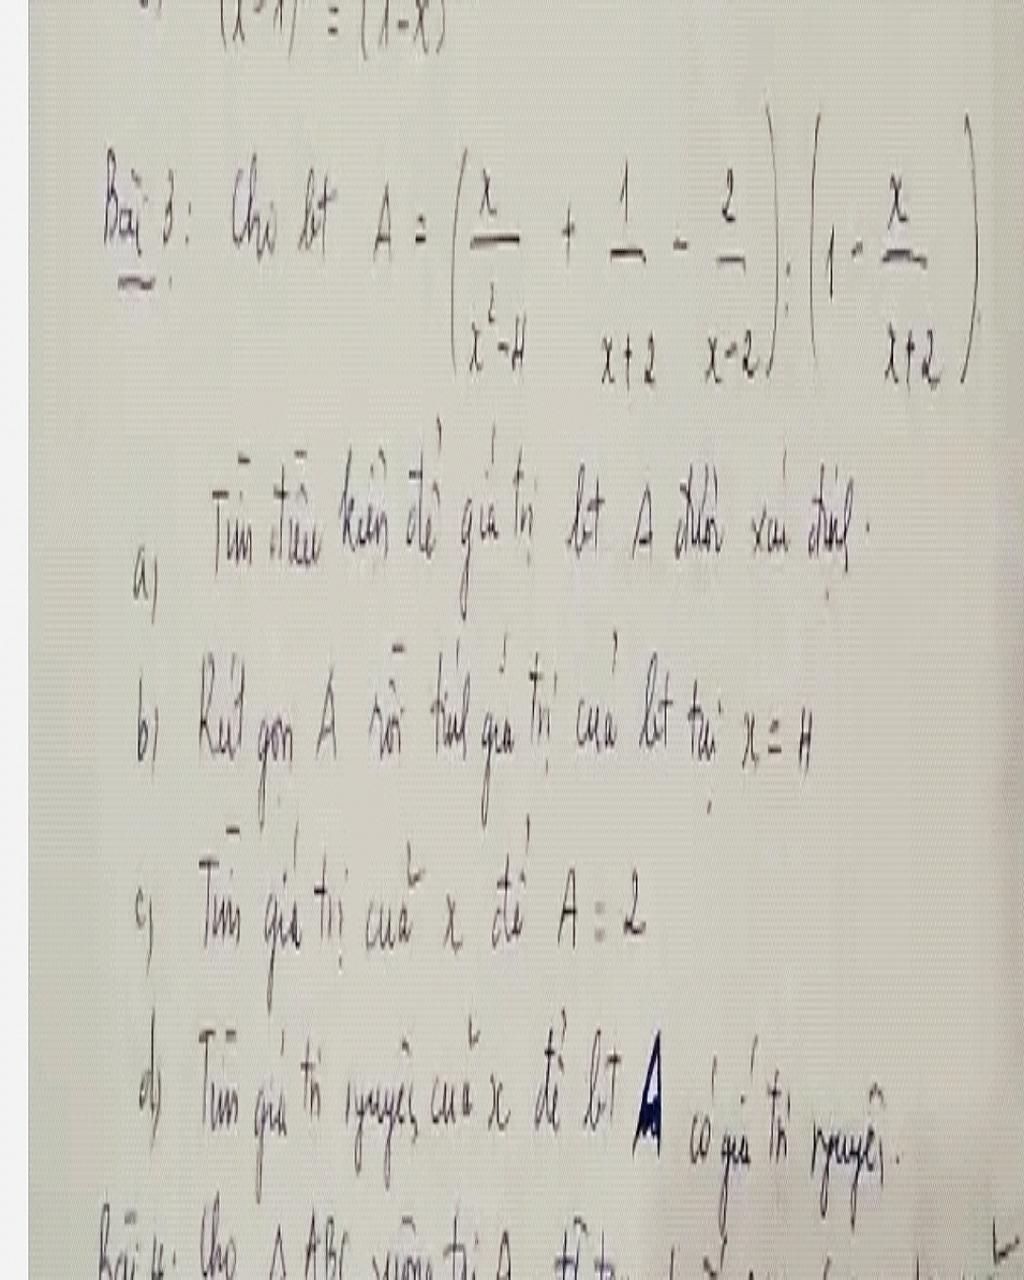 (x-1) = (1-x)
Bài 3: Cho bt A = (x/(x²-4) + 1/(x+2) - 2/(x-2)) : (1 - x/(x+2)).
a) Tìm điều kiện để giá trị bt A được xác định.
b) Rút gọn A rồi tính giá trị của bt tại x = 4
c) Tìm giá trị của x để A = 2
d) Tìm giá trị nguyên của x để bt A có giá trị nguyên.
Bài 4: Cho Δ ABC vuông tại A,